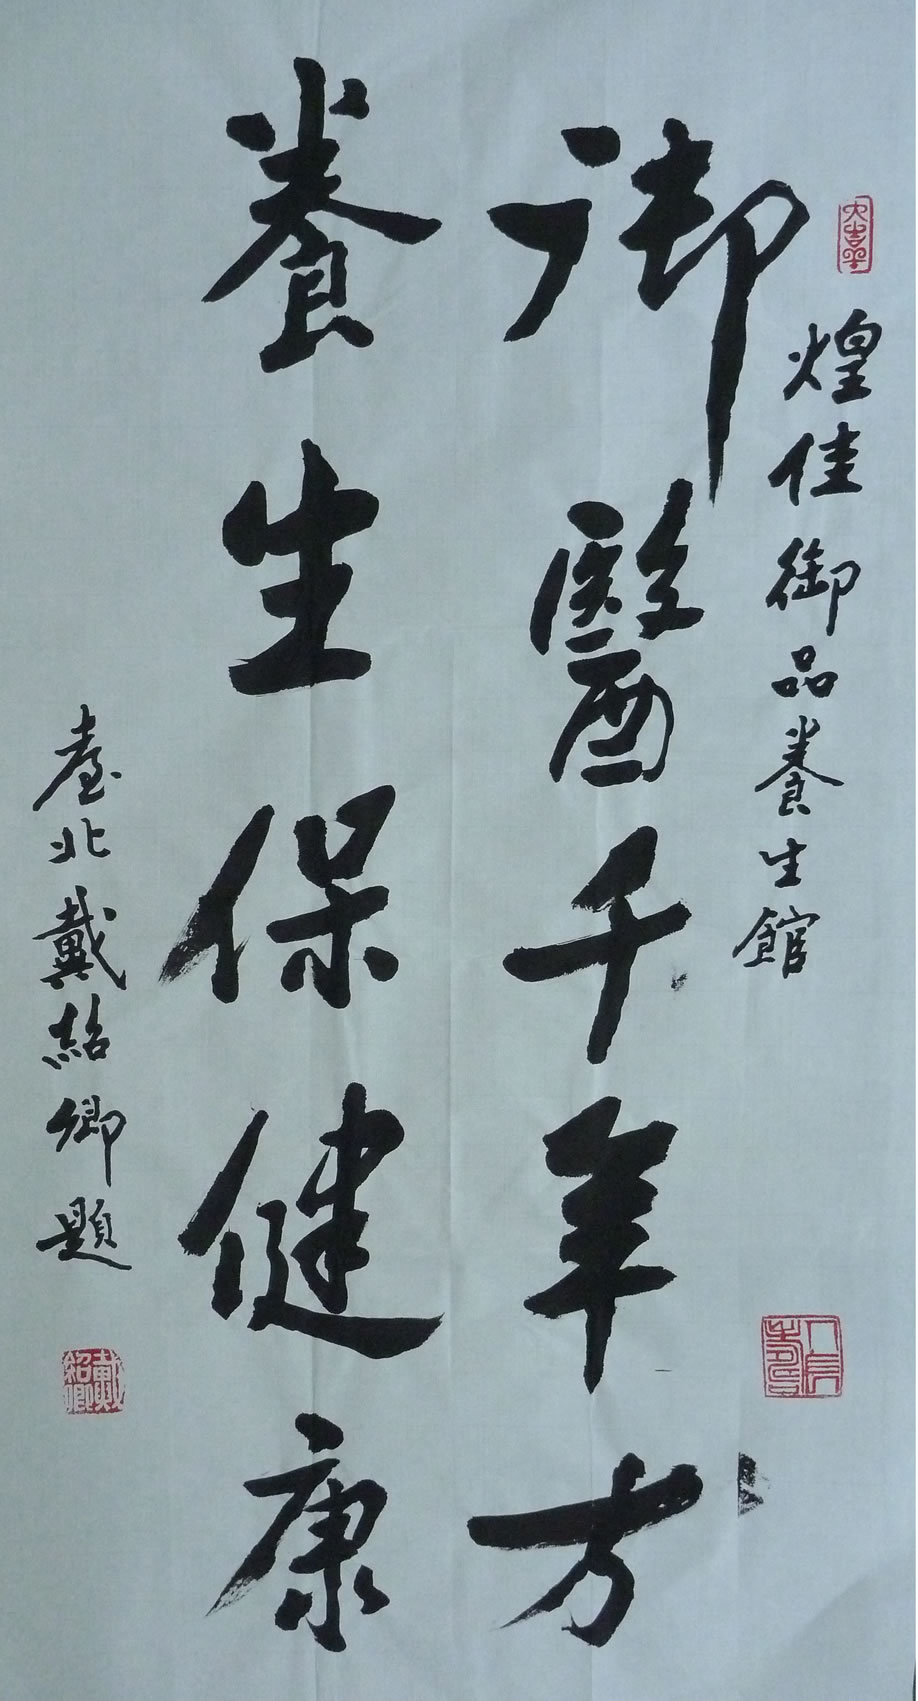 大吉羊
煌佳御品養生館
御醫千年方
養生保健康
臺北戴紹卿題
戴紹卿